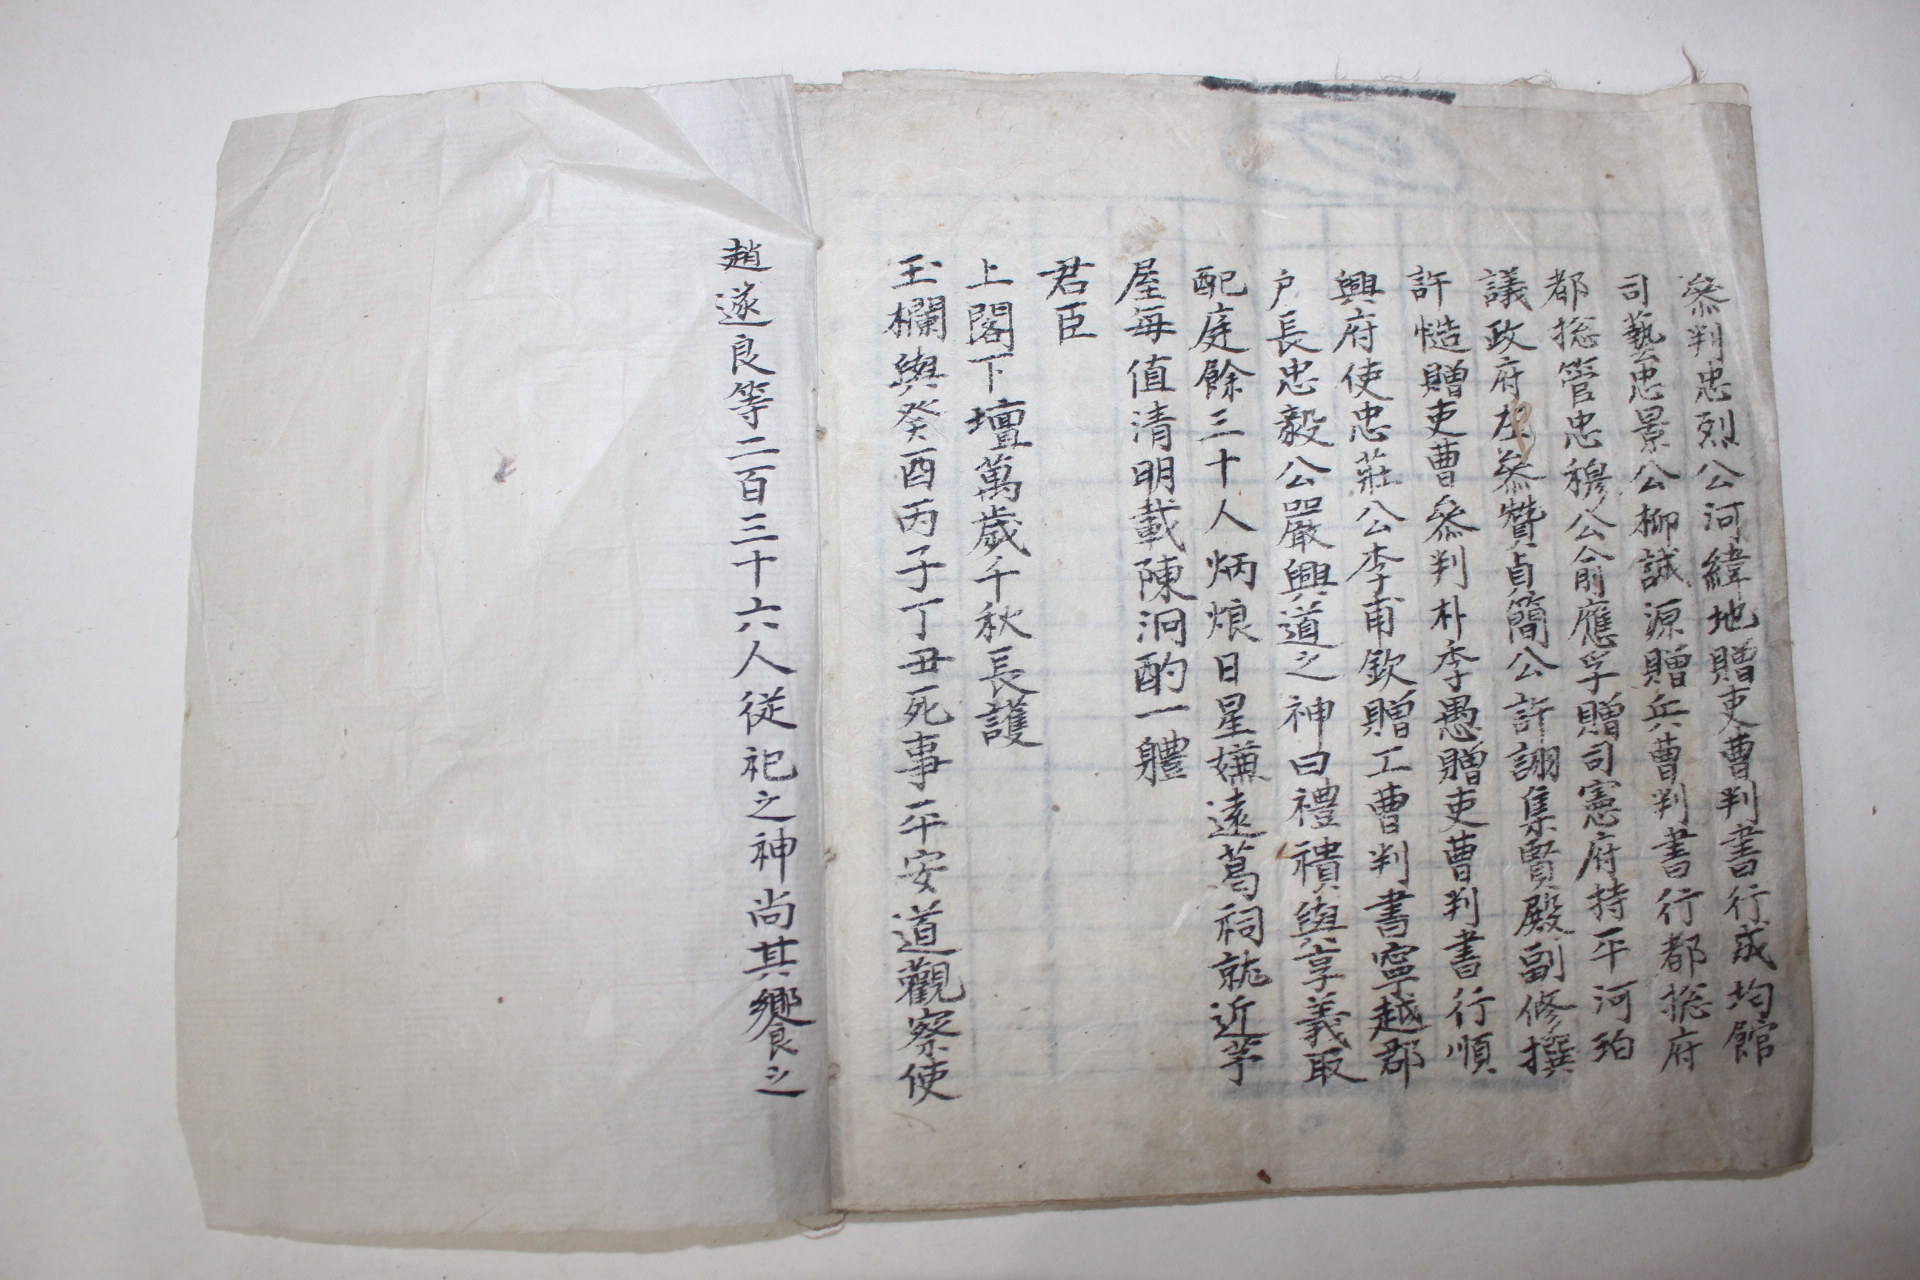 參判忠烈公河緯地贈吏曹判書行成均館
司藝忠景公柳誠源贈兵曹判書行都摠府
都摠管忠穆公俞應孚贈司憲府持平河珀
議政府左參贊貞簡公許詡集賢殿副修撰
許慥贈吏曹參判朴季愚贈吏曹判書行順
興府使忠莊公李甫欽贈工曹判書寧越郡
戶長忠毅公嚴興道之神曰禮禮與享義取
配庭餘三十人炳烺日星嫌遠葛祠就近芧
屋每值清明載陳泂酌一軆
君臣
上閣下壇萬歲千秋長護
玉欄與癸酉丙子丁丑死事平安道觀察使
趙遂良等二百三十六人從祀之神尚其饗之